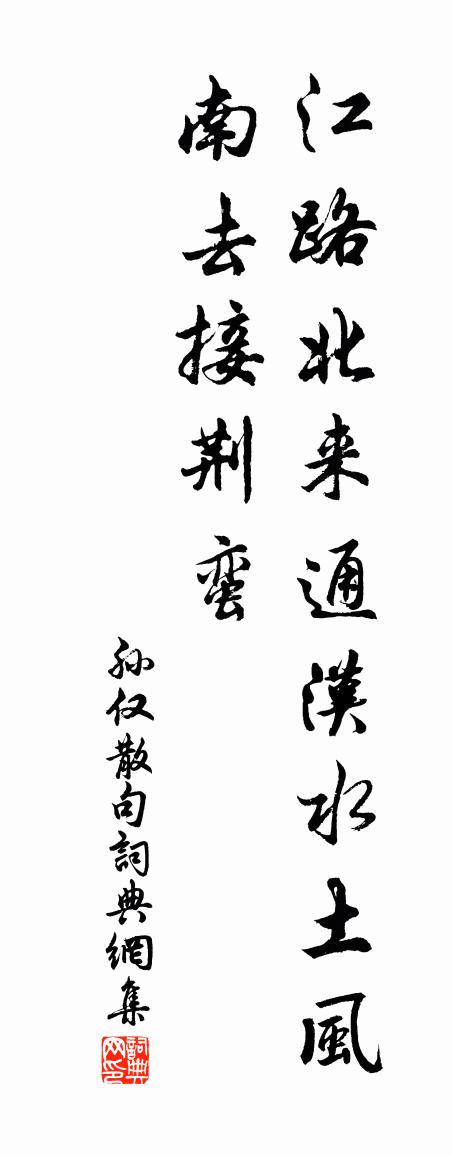 江路北来通漢水土風
南去接荆蛮
孙仅散句詞典網集
詞典网印